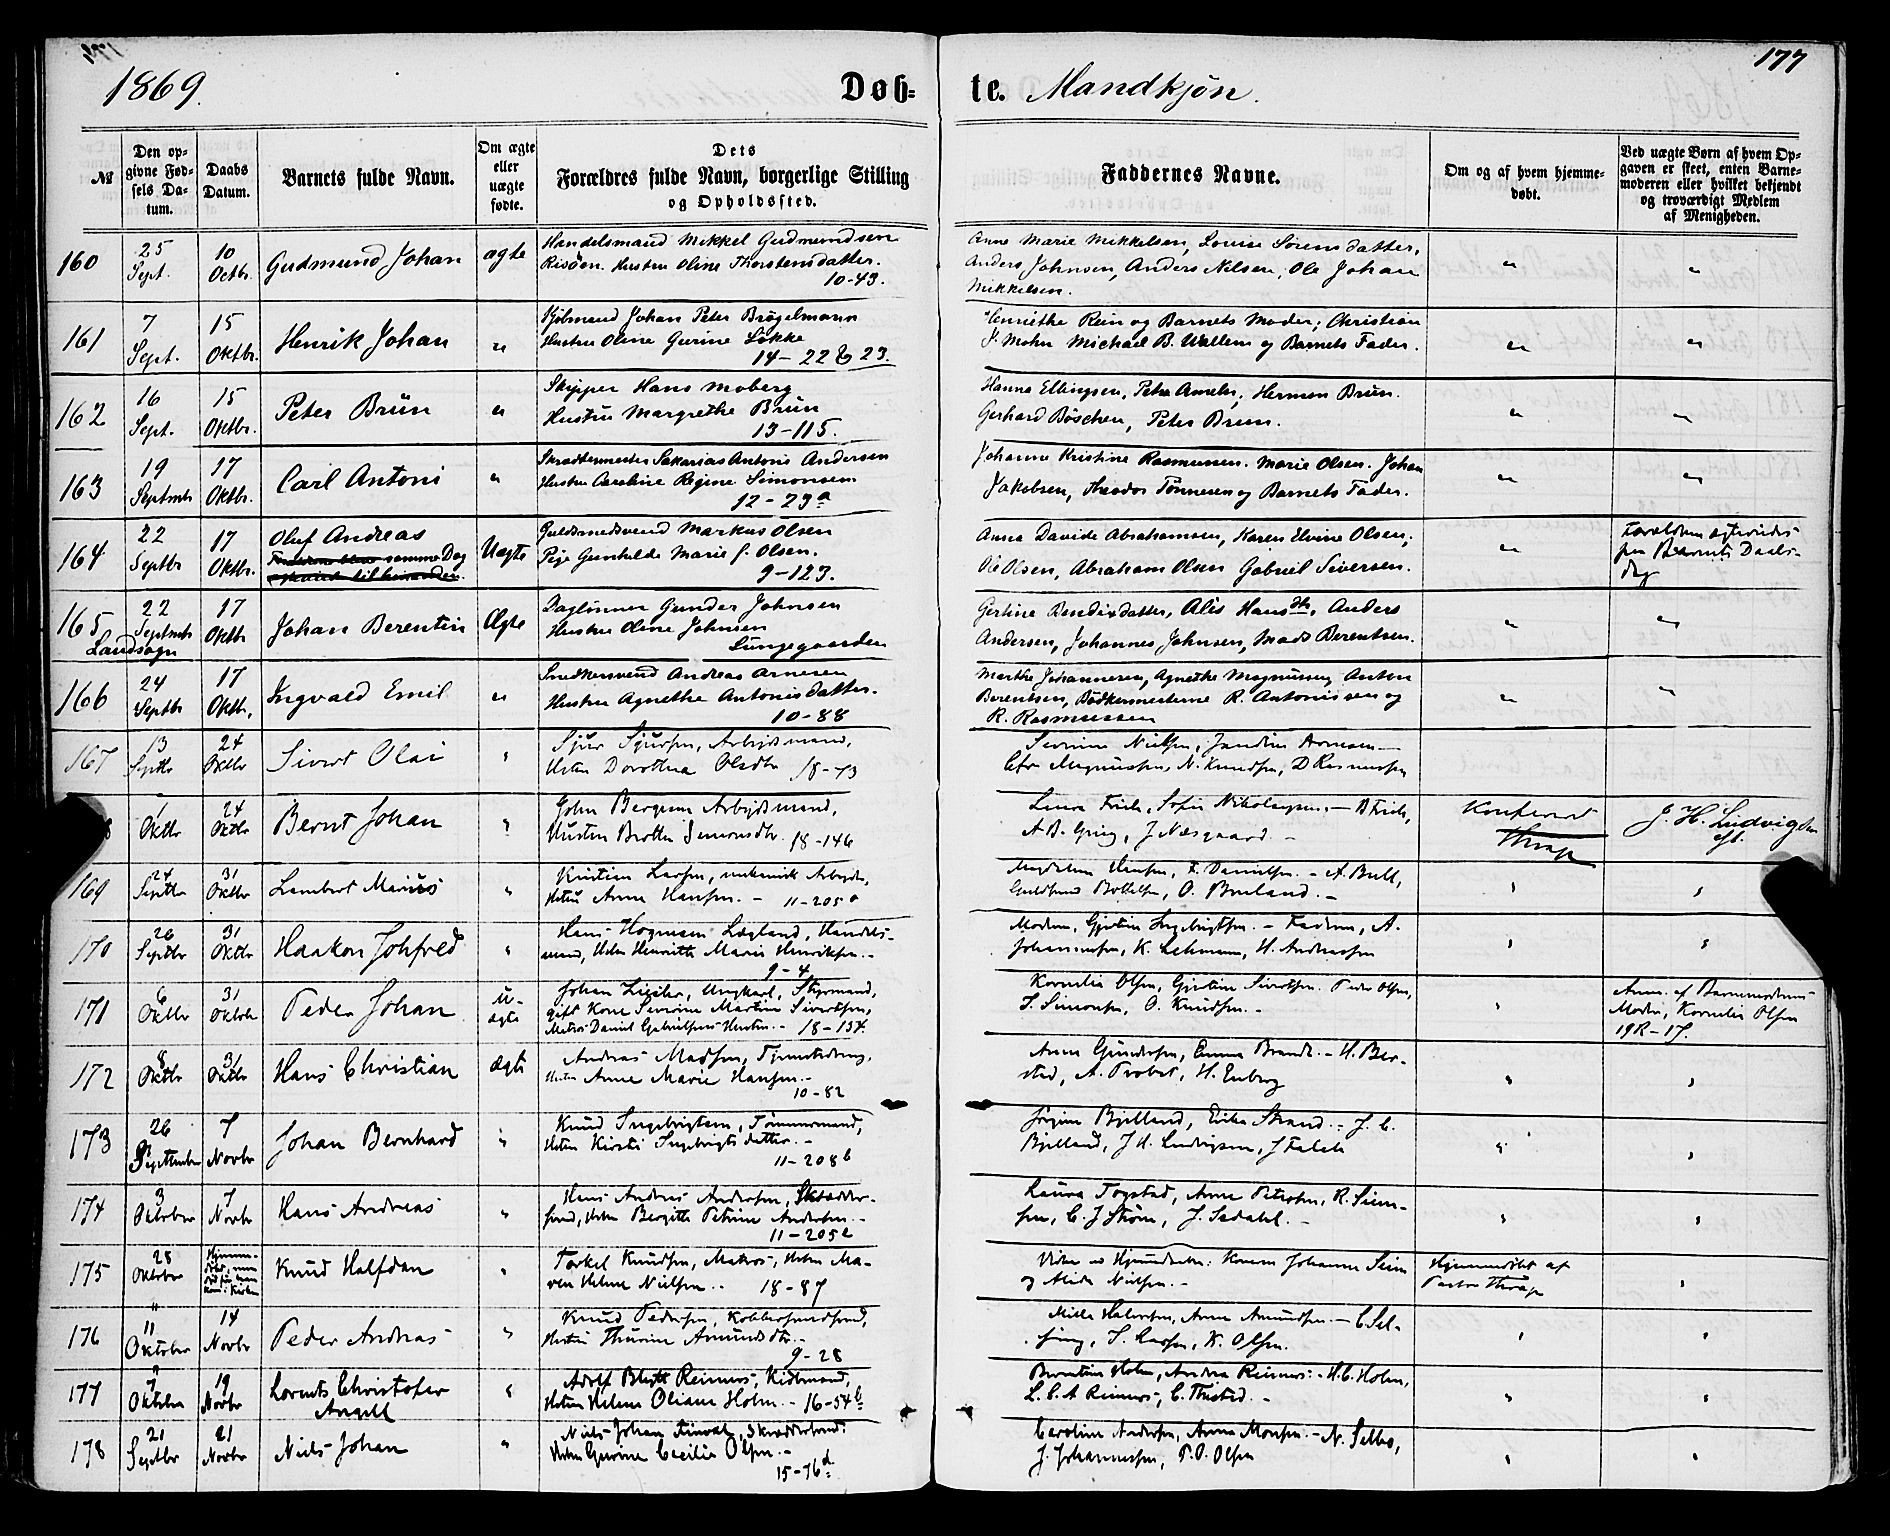 1869.
Døb-
te. Mandkjøn.
177
№
Den op-
givne Fød-
sels Da-
tum.
Daabs
Datum.
Barnets fulde Navn.
Om ægte
eller
uægte
fødte.
Dets
Forældres fulde Navn, borgerlige Stilling
og Opholdssted.
Faddernes Navne.
Om og af hvem hjemme-
døbt.
Ved uægte Børn af hvem Op-
gaven er skeet, enten Barne-
moderen eller hvilket bekjendt
og troværdigt Medlem
af Menigheden.
160
25
Sept.
10
Octbr.
Gudmund Johan
ægte
Handelsmand Mikkel Gudmundsen
Risøen. Hustru Oline Thorstensdatter.
10-43.
Anne Marie Mikkelsen, Lovise Sørensdatter,
Anders Johnsen, Anders Nilsen, Ole Johan
Mikkelsen.
161
7
Sept.
15
Oktbr.
Henrik Johan
"
Kjøbmand Johan Peter Brøgelmann
Hustru Oline Gurine Løkke
14- 22 & 23.
Henriethe Rein og Barnets Moder; Christian
S. Mohn Michael B. Wallem og Barnets Fader.
162
16
Sept.
15
Oktbr.
Peter Brün
"
Skipper Hans Moberg
Hustru Margrethe Brün
13-115.
Hanna Ellingsen, Petra Ameln, Herman Brün.
Gerhard Böschen, Peter Brun.
163
19
Septmb
17
Oktbr.
Carl Antoni
"
Skrædermester Sakarias Antoni Andersen
Hustru Caroline Regine Simonsen
12-23a
Johanne Kristine Rasmussen. Marie Olsen. Johan
Jakobsen, Theodor Tønnesen og Barnets Fader.
164
22
Septbr
17
Oktbr.
Oluf Andreas
samme Dag
Uægte
Guldsmedsvend Markus Olsen
Pige Gunhilde Marie f. Olsen.
9-123.
Anna Davida Abrahamsen, Karen Elvine Olsen,
Ole Olsen, Abraham Olsen Gabriel Siversen.
Forældrene
Barnets Daabs-
dag
165
Landsogn
22
Septmb
17
Oktbr
Johan Berentin
Ægte
Daglönner Gunder Johnsen
Hustru Oline Johnsen
Lungegaarden
Gertine Bendixdatter, Alis Hansdtr, Anders
Andersen, Johannes Johnsen, Mads Berentsen.
166
24
Septbr
17
Oktbr.
Ingvald Emil
"
Snedkersvend Andreas Arnesen
Hustru Agnethe Antonisdatter.
10-88
Marthe Johannesen, Agnethe Magnussen, Anton
Berentsen, Bødkermesterne R. Antonissen og
R. Rasmussen
167
13
Septbr
24
Oktbr
Sivert Olai
Sjur Sjursen, Arbejdsmand,
Hustru Dorothea Olsdtr 18-73
Severine Nielsen, Jandine Arnesen
Magnussen, N. Knudsen, D Rasmussen
1
Oktbr
24
Oktbr
Bernt Johan
John Bergesen Arbejdsmand,
Hustru Brotha Simonsdtr. 18-146
Laura Friele, Sofie Nikolaysen, - B Friele,
A. B. Grieg, J Næsgaard. -
Konfereret
Thrap
J. H. Ludvigsen
169
24
Septbr
31
Oktbr
Lambert Marius
Kristian Larsen, mekanisk Arbejder,
Hustru Anne Hansen. - 11-205
Magdalene Hansen, F. Danielsen. - A. Bull,
O. Bruland. -
170
26
Septbr
31
Oktbr
Haakon Johfred
Hans Hogneson Lægland, Handels-
mand, Hustru Henriette Marie Henriksen.-
9-4
Modren, Gjertine Ingebrigtsen. - Fadren, A.
Johannesen, K. Lehmann, H. Andreassen
171
6
Oktbr
31
Oktobr
Peder Johan
U-
ægte
Johan Zigiler, Ungkarl, Styrmand,
gift Kone Severine Martine Sivertsen,
Matros Daniel Gabrielsens Hustru.- 18-134.
Kornelia Olsen, Gjertine Sivertsen. Peder Olsen,
S. Simonsen, O. Knudsen. -
Anm. af Barnemodrens
Moder, Kornelia Olsen
19R-17.
172
8
Oktbr
31
Oktbr
Hans Christian
Ægte
Andreas Madsen, Tjenestedreng,
Hustru Anne Marie Hansen.-
10-82
Anne Gundersen, Emma Brandt. - H. Ber-
sted, A. Probst, H. Enberg
173
26
September
7
Novbr
Johan Bernhard
Knud Ingebrigtsen, Tømmermand,
Hustru Kirsti Ingebrigtsdatter.-
11-208b
Jørgine Bjelland, Erika Strand. - J. C.
Bjelland, J. H. Ludvigsen, J Falch
174
3
Oktober
7
Novbr
Hans Andreas
Hans Andreas Andersen, Skrædder-
svend, Hustru Bergitte Petrine Andersen.-
11-205
Laura Togstad, Anne Petersen, R. Simon-
sen, C. J Strøm, J. Sædahl. -
175
28
Oktober
Hjemme-
døbt, men
død før han
kom i Kirken
Knud Halfdan
Torkel Knudsen, Matros, Hustru Ma-
ren Helene Nielsen.. 18-87
Vidner ved Hjemmedaaben: Konerne Johanne Seim
og Alida Nielsen.-
Hjemmedøbt af
Pastor Thrap
176
11
Oktober
14
Novbr
Peder Andreas
Knud Pedersen, Kobbersmedsvend,
Hustru Thurine Amundsdtr.-
9-28
Milla Halvorsen, Anne Amundsen. - C. Sel-
S. Larsen, K. Olsen.
177
7
Oktober
19
Novbr
Lorents Christofer
Angell
Adolf Blytt Reimers, Kjøbmand,
Hustru Helene Oliane Holm. - 16-54b
Berntine Holm, Andrea Reimers. - H. C. Holm,
L. C. A Reimers, C. Thistad. -
178
21
Septbr
21
Novbr
Niels Johan
Niels Johan Finvat, Skræddersvend.
Hustru Gurine Cecilia Olsen.-
15-76d
Caroline Andersen, Anna Monsen. - N. Selbo,
J. Johannessen, P. O. Olsen